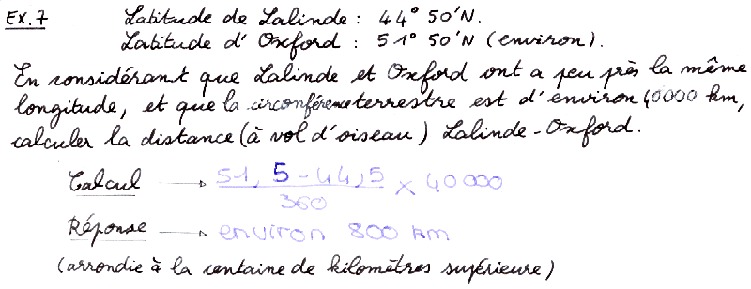 Ex. 7 Latitude de Lalinde : 44° 50'N.
Latitude d'Oxford : 51° 50'N (environ).
En considérant que Lalinde et Oxford ont a peu près la même
longitude, et que la circonférence terrestre est d'environ 40000 km,
calculer la distance (à vol d'oiseau) Lalinde-Oxford.
Calcul → 51,5-44,5 × 40000
360
Réponse → environ 800 km
(arrondie à la centaine de kilomètres supérieure)